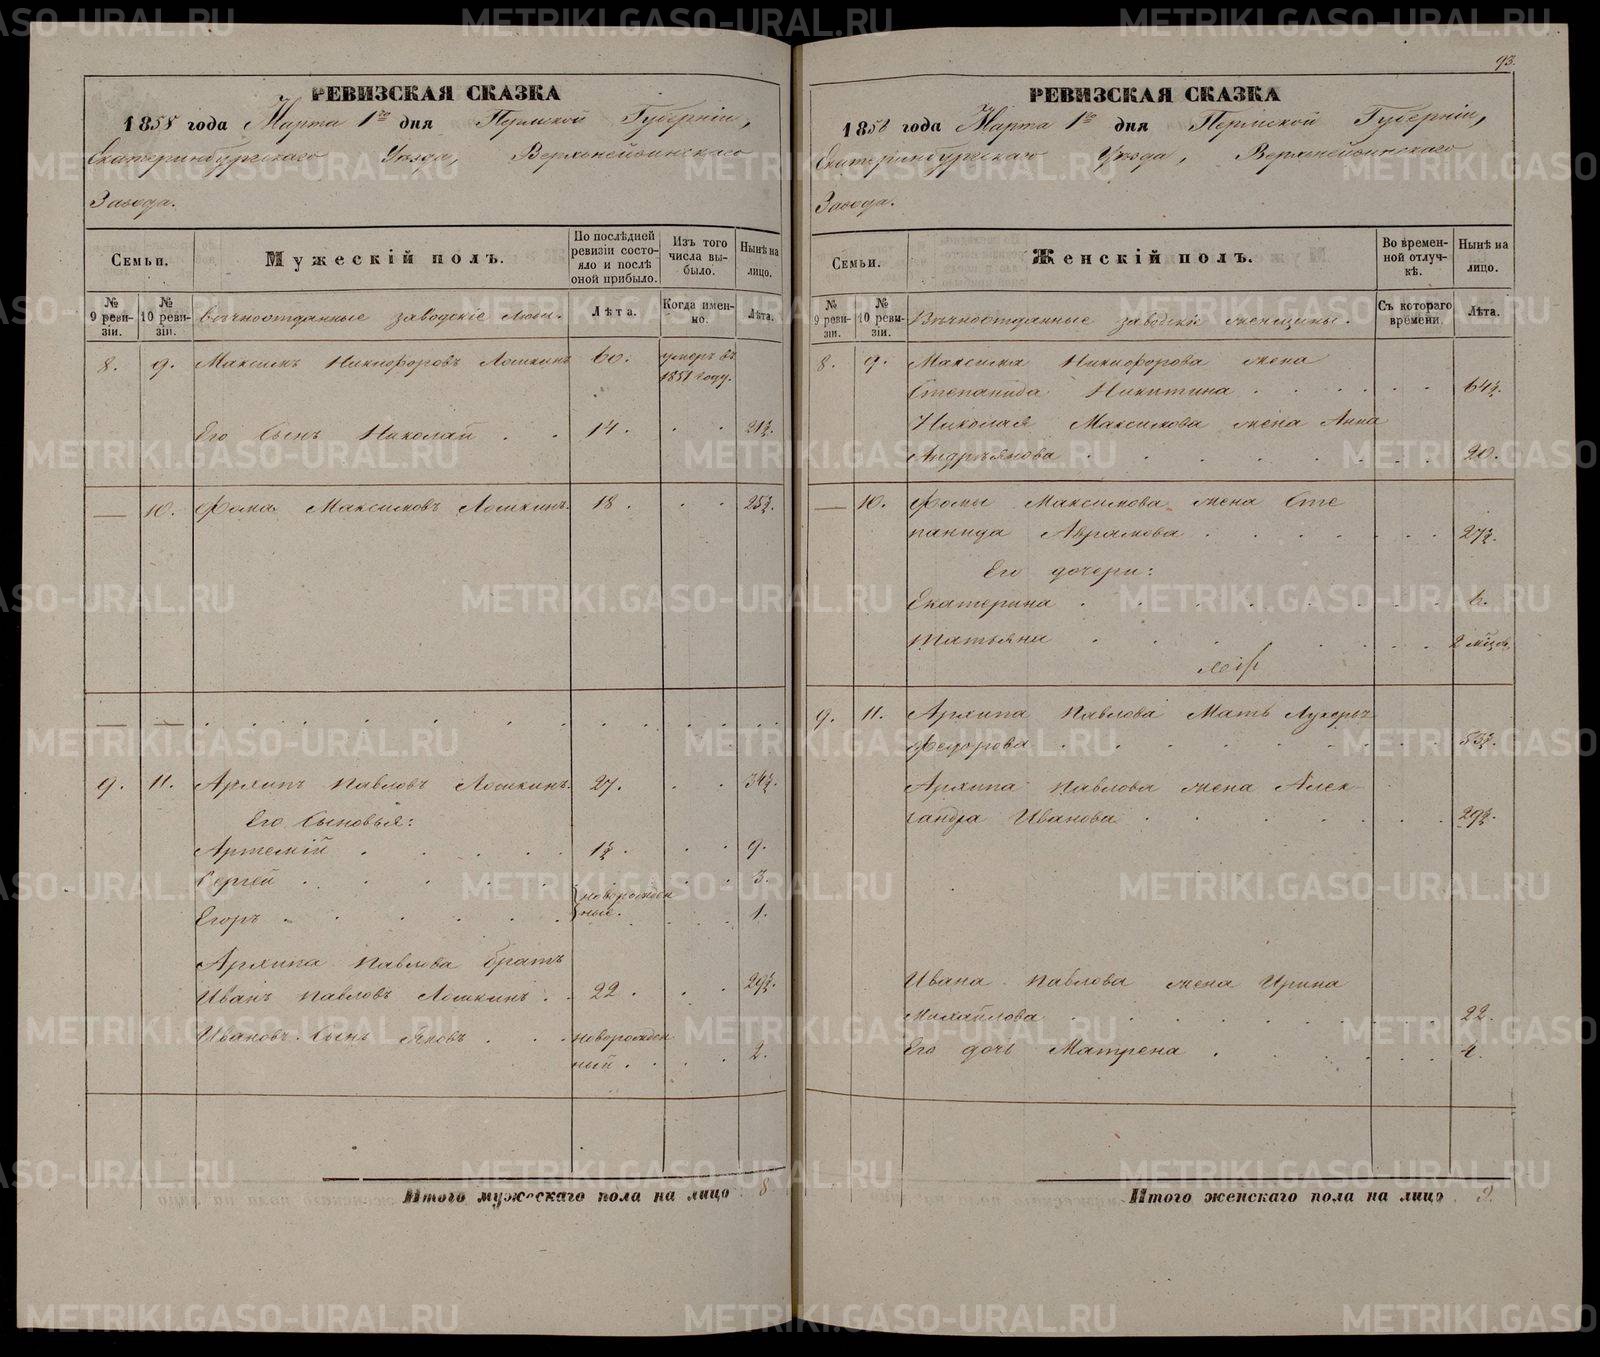 РЕВИЗСКАЯ СКАЗКА
1858 года Марта 1го дня Пермской Губерніи,
Екатеринбургскаго Уезда, Верхнейвинскаго
Завода.
Семьи.
Мужескій полъ.
По послѣдней ревизіи состояло и послѣ оной прибыло.
Изъ того числа выбыло.
Нынѣ на лицо.
№ 9 ревизіи.
№ 10 ревизіи.
Вѣчноотданные заводскіе люди.
Лѣта.
Когда именно.
Лѣта.
8. 9. Максимъ Никифоровъ Лошкинъ 60. умеръ въ
1851 году.
Его Сынъ Николай . . 14. . . 21½.
— 10. Фома Максимовъ Лошкинъ. 18. . . 25½.
— —
9. 11. Архипъ Павловъ Лошкинъ. 27. . . 34½.
Его Сыновья:
Артемій . . . . 1½. . . 9.
Сергей . . . . . 3.
новорожден
ные.
Егоръ . . . . . 1.
Архипа Павлова братъ
Иванъ Павловъ Лошкинъ . . 22. . . 29½.
Ивановъ Сынъ Яковъ . . . новорожден
ный. . . . 2.
Итого мужескаго пола на лицо 8
93.
РЕВИЗСКАЯ СКАЗКА
1858 года Марта 1го дня Пермской Губерніи,
Екатеринбургскаго Уезда, Верхнейвинскаго
Завода.
Семьи.
Женскій полъ.
Во временной отлучкѣ.
Нынѣ на лицо.
№ 9 ревизіи.
№ 10 ревизіи.
Вѣчноотданные заводскія женщины.
Съ котораго времени.
Лѣта.
8. 9. Максима Никифорова жена
Степанида Никитина . . . . . . 64½.
Николая Максимова жена Анна
Андреянова . . . . . . . 20.
— 10. Фомы Максимова жена Сте
панида Аврамова . . . . . . . 27½.
Его дочери:
Екатерина . . . . . . . 6.
Татьяна . . . . . . 2
9. 11. Архипа Павлова Мать Лукерья
Федорова . . . . . . . 53½.
Архипа Павлова жена Алек-
сандра Иванова . . . . . . 29½.
Ивана Павлова жена Ирина
Михайлова . . . . . . . 22.
Его дочь Матрена . . . . . 4.
Итого женскаго пола на лицо 9.
METRIKI.GASO-URAL.RU